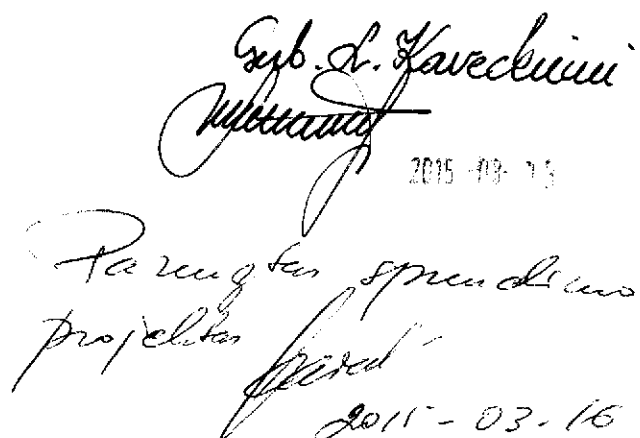 Gerb. L. Kaveckienei
2015 -03-
Parengtas sprendimo
projektas
2015-03-16